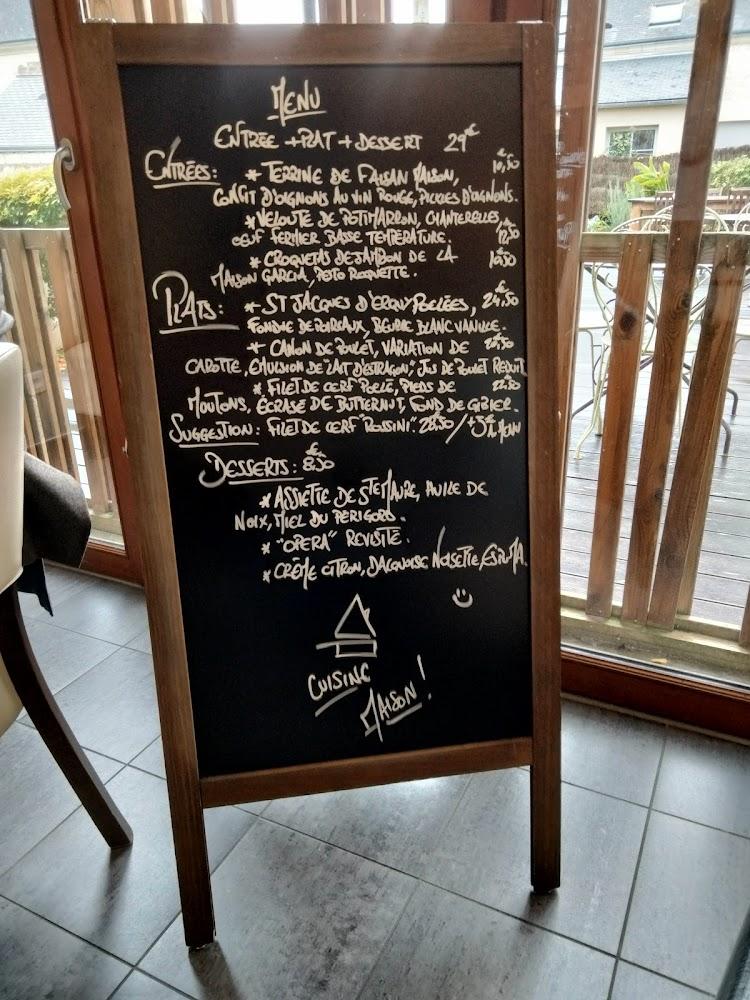 MENU
ENTRÉE + PLAT + DESSERT 29€
ENTRÉES: * TERRINE DE FAISAN MAISON, 10,50
CONFIT D'OIGNONS AU VIN ROUGE, PICKLES D'OIGNONS.
* VELOUTÉ DE POTIMARRON, CHANTERELLES, 12,50
OEUF FERMIER BASSE TEMPÉRATURE.
* CROQUETAS DE JAMBON DE LA 10,50
MAISON GARCIA, PESTO ROQUETTE.
PLATS: * ST JACQUES D'ERQUY POÊLÉES, 24,50€
FONDUE DE POIREAUX, BEURRE BLANC VANILLE.
* CANON DE POULET, VARIATION DE
CAROTTE, ÉMULSION DE LAIT D'ESTRAGON, JUS DE POULET RÉDUIT
* FILET DE CERF POÊLÉ, PIEDS DE 22,50
MOUTONS, ÉCRASÉ DE BUTTERNUT, FOND DE GIBIER.
SUGGESTION: FILET DE CERF "ROSSINI". 28,50 /
DESSERTS: 8,50€
* ASSIETTE DE STE MAURE, HUILE DE
NOIX, MIEL DU PÉRIGORD.
* "OPÉRA" REVISITÉ.
* CRÈME CITRON, DACQUOISE NOISETTE, ESPUMA.
CUISINE
MAISON!